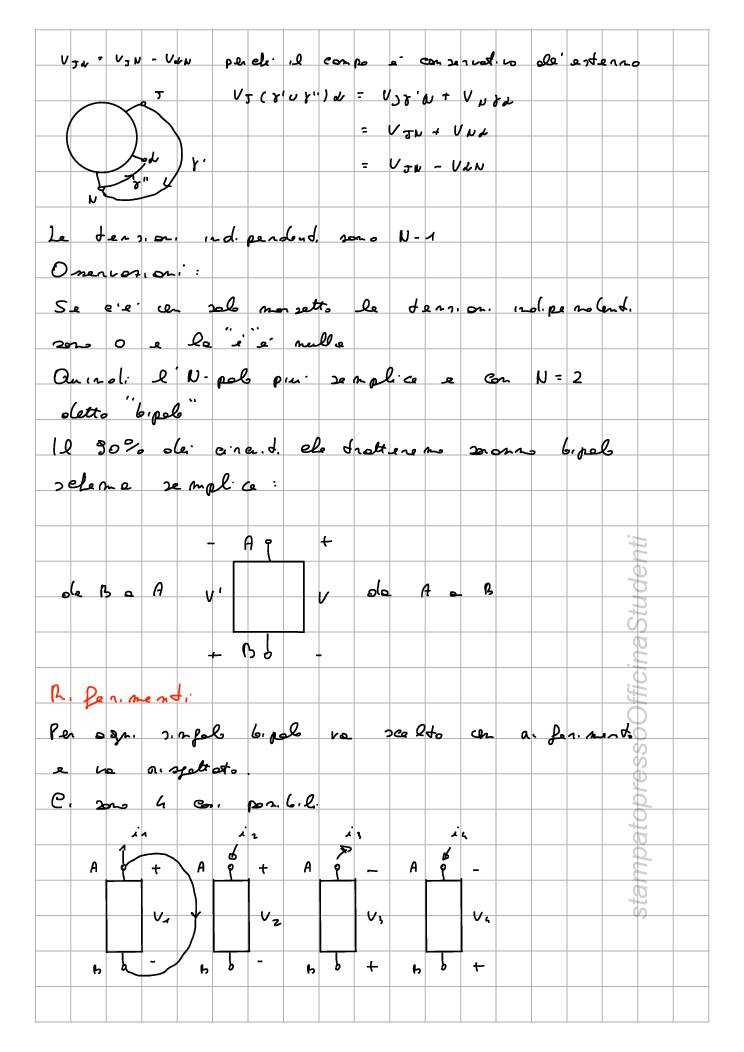 V_JN = V_JN - V_αN perché il campo è conservativo all'esterno
J
V_J(γ'∪γ'')α = V_Jγ'N + V_Nγα
= V_JN + V_Nα
= V_JN - V_αN
α
γ'
γ''
N
Le tensioni indipendenti sono N-1
Osservazioni:
Se c'è un solo morsetto le tensioni indipendenti
sono 0 e la "i" è nulla
Quindi l'N-polo più semplice è con N=2
detto "bipolo"
Il 90% dei circuiti che tratteremo saranno bipolo
schema semplice:
- A +
da B a A V' V da A a B
+ B -
Riferimenti
Per ogni singolo bipolo va scelto un riferimento
e va rispettato.
Ci sono 4 casi possibili
i1 i2 i3 i4
A + A + A - A -
V1 V2 V3 V4
B - B - B + B +
stampatopressoOfficinaStudenti